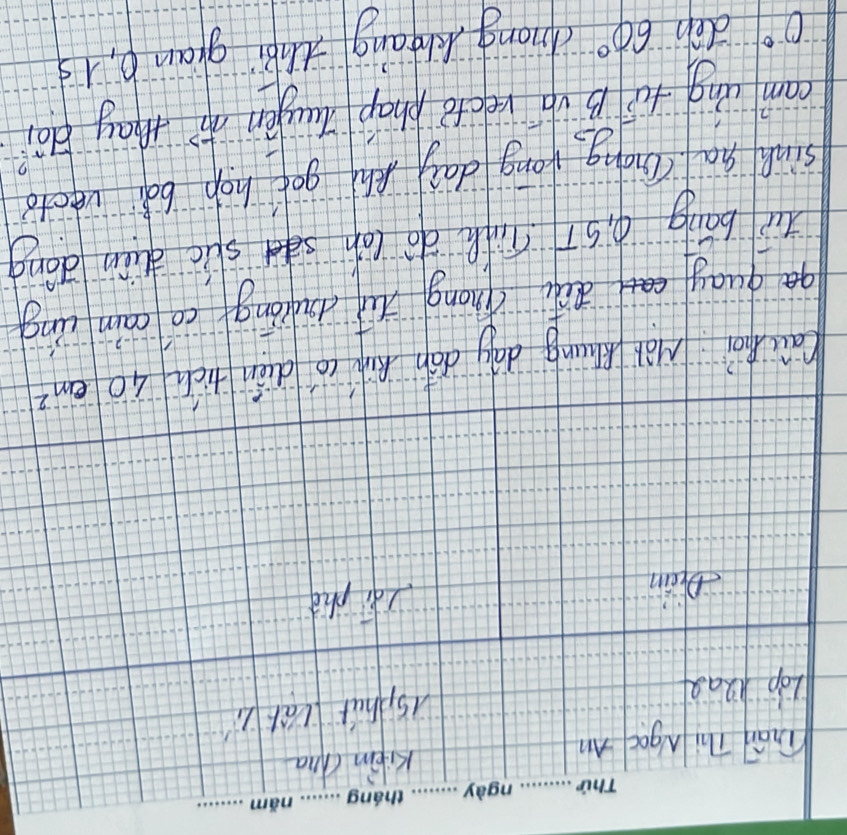 Thứ ......... ngày ......... tháng ......... năm .........
Trần Thị Ngọc An
Kiểm tra
Lớp 12a2
15 phút Vật Lí
Điểm
Lời phê
Câu hỏi: Một khung dây dẫn kín có diện tích 40 cm²
quay đều trong từ trường có cảm ứng
từ bằng 0,5T. Tính độ lớn suất điện động
sinh ra trong vòng dây khi góc hợp bởi vectơ
cảm ứng từ B và vectơ pháp tuyến n thay đổi
0° đến 60° trong khoảng thời gian 0,1s